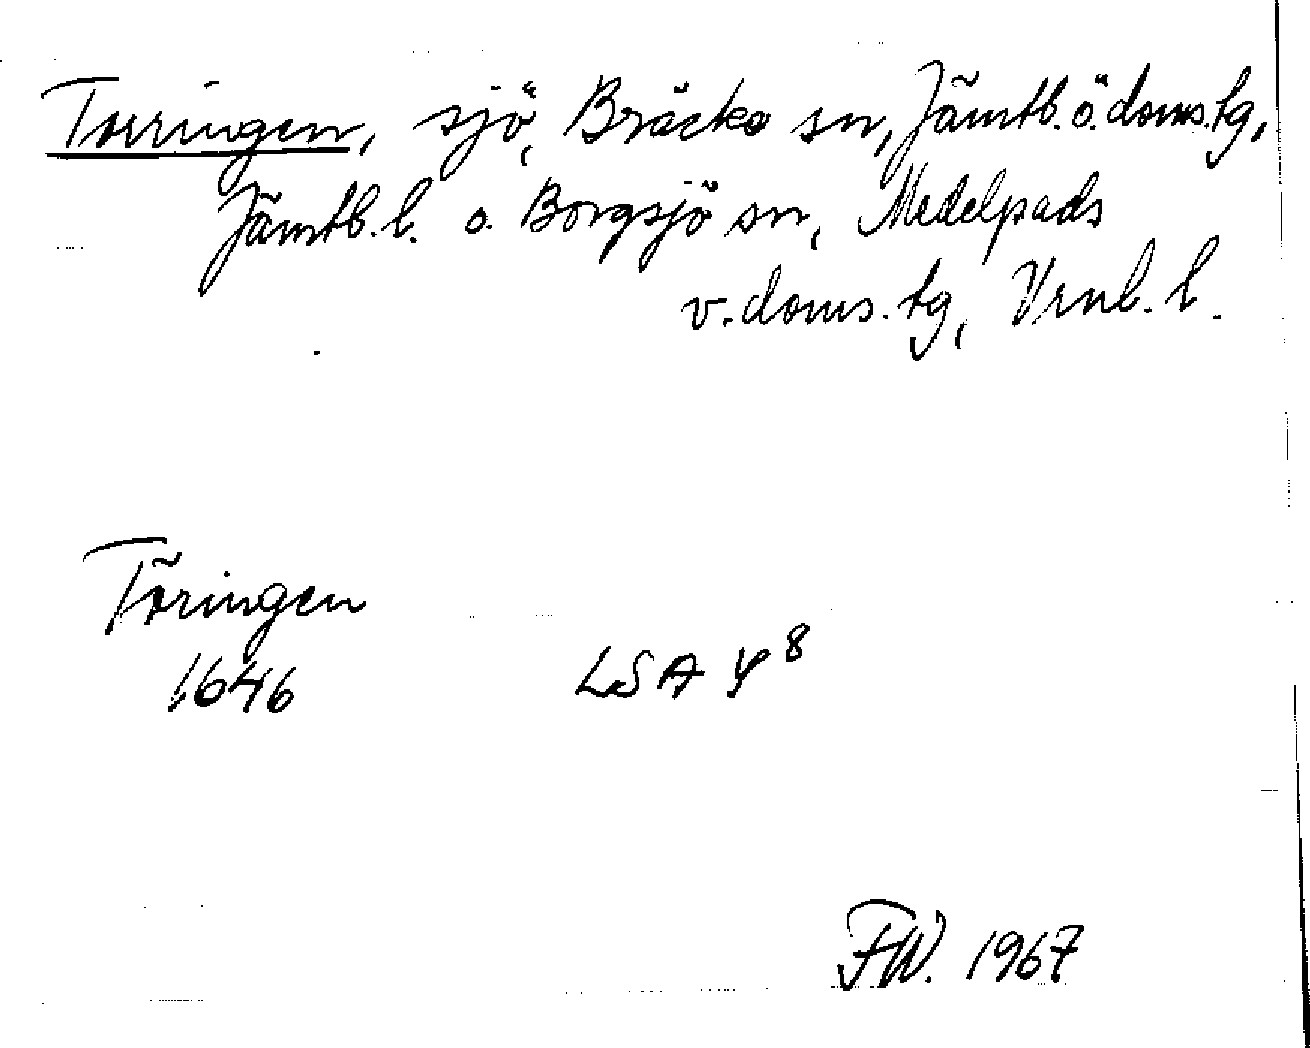 Torringen, sjö, Bräcke sn, Jämtb. ö. doms. tg,
Jämtb. l. o. Borgsjö sn, Medelpads
v. doms. tg, Vrnl. l.
Töringen
1646 LSA Y 8
FW. 1967